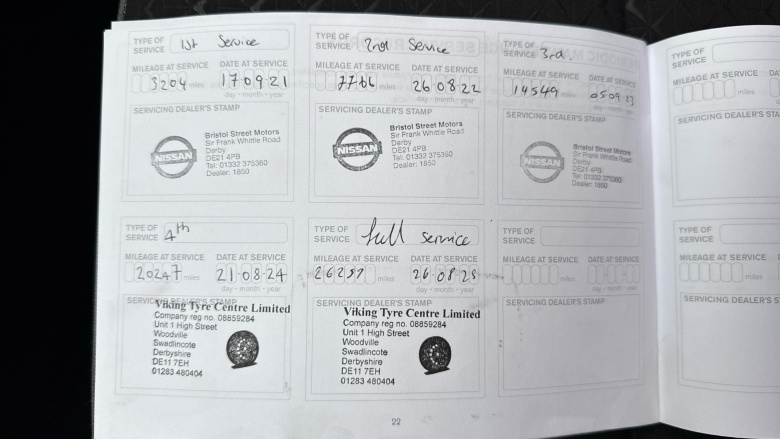 TYPE OF SERVICE 1st Service
MILEAGE AT SERVICE DATE AT SERVICE
3204 miles 17 09 21
day - month - year
SERVICING DEALER'S STAMP
NISSAN
Bristol Street Motors
Sir Frank Whittle Road
Derby
DE21 4PB
Tel: 01332 375360
Dealer: 1850
TYPE OF SERVICE 2nd Service
MILEAGE AT SERVICE DATE AT SERVICE
7766 miles 26 08 22
day - month - year
SERVICING DEALER'S STAMP
NISSAN
Bristol Street Motors
Sir Frank Whittle Road
Derby
DE21 4PB
Tel: 01332 375360
Dealer: 1850
TYPE OF SERVICE 3rd.
MILEAGE AT SERVICE DATE AT SERVICE
14549 miles 05 09 23
day - month - year
SERVICING DEALER'S STAMP
NISSAN
Bristol Street Motors
Sir Frank Whittle Road
Derby
DE21 4PB
Tel: 01332 375360
Dealer: 1850
TYPE OF SERVICE
MILEAGE AT SERVICE
miles
SERVICING DEALER'S STA
TYPE OF SERVICE 4th
MILEAGE AT SERVICE DATE AT SERVICE
20247 miles 21-08-24
day - month - year
SERVICING DEALER'S STAMP
Viking Tyre Centre Limited
Company reg no. 08859284
Unit 1 High Street
Woodville
Swadlincote
Derbyshire
DE11 7EH
01283 480404
TYPE OF SERVICE full service
MILEAGE AT SERVICE DATE AT SERVICE
26257 miles 26-08-25
day - month - year
SERVICING DEALER'S STAMP
Viking Tyre Centre Limited
Company reg no. 08859284
Unit 1 High Street
Woodville
Swadlincote
Derbyshire
DE11 7EH
01283 480404
TYPE OF SERVICE
MILEAGE AT SERVICE DATE AT SERVICE
miles
day - month - year
SERVICING DEALER'S STAMP
TYPE OF SERVICE
MILEAGE AT SERVICE
miles
SERVICING DEALER'S S
22